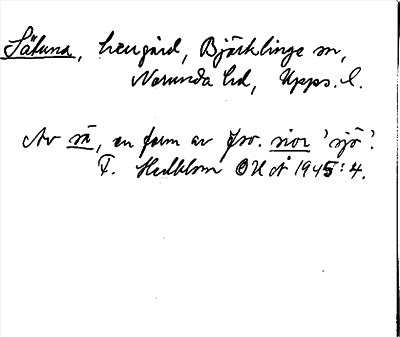 Sätuna, herrgård, Björklinge sn,
Norunda hd, Upps. l.
Av sä, en form av fsv. sior 'sjö'.
F. Hedblom OUÅ 1945:4.